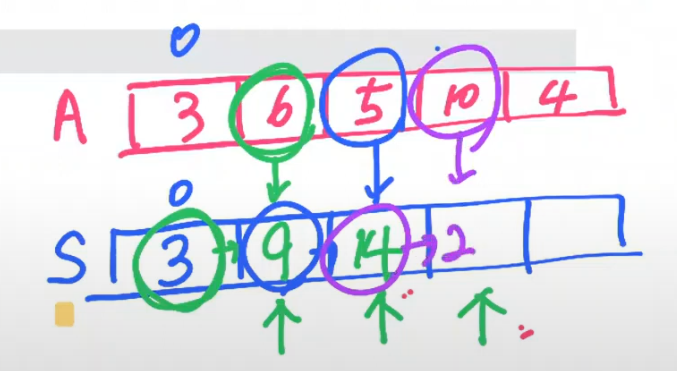 0
A 3 6 5 10 4
0
S 3 9 14 2